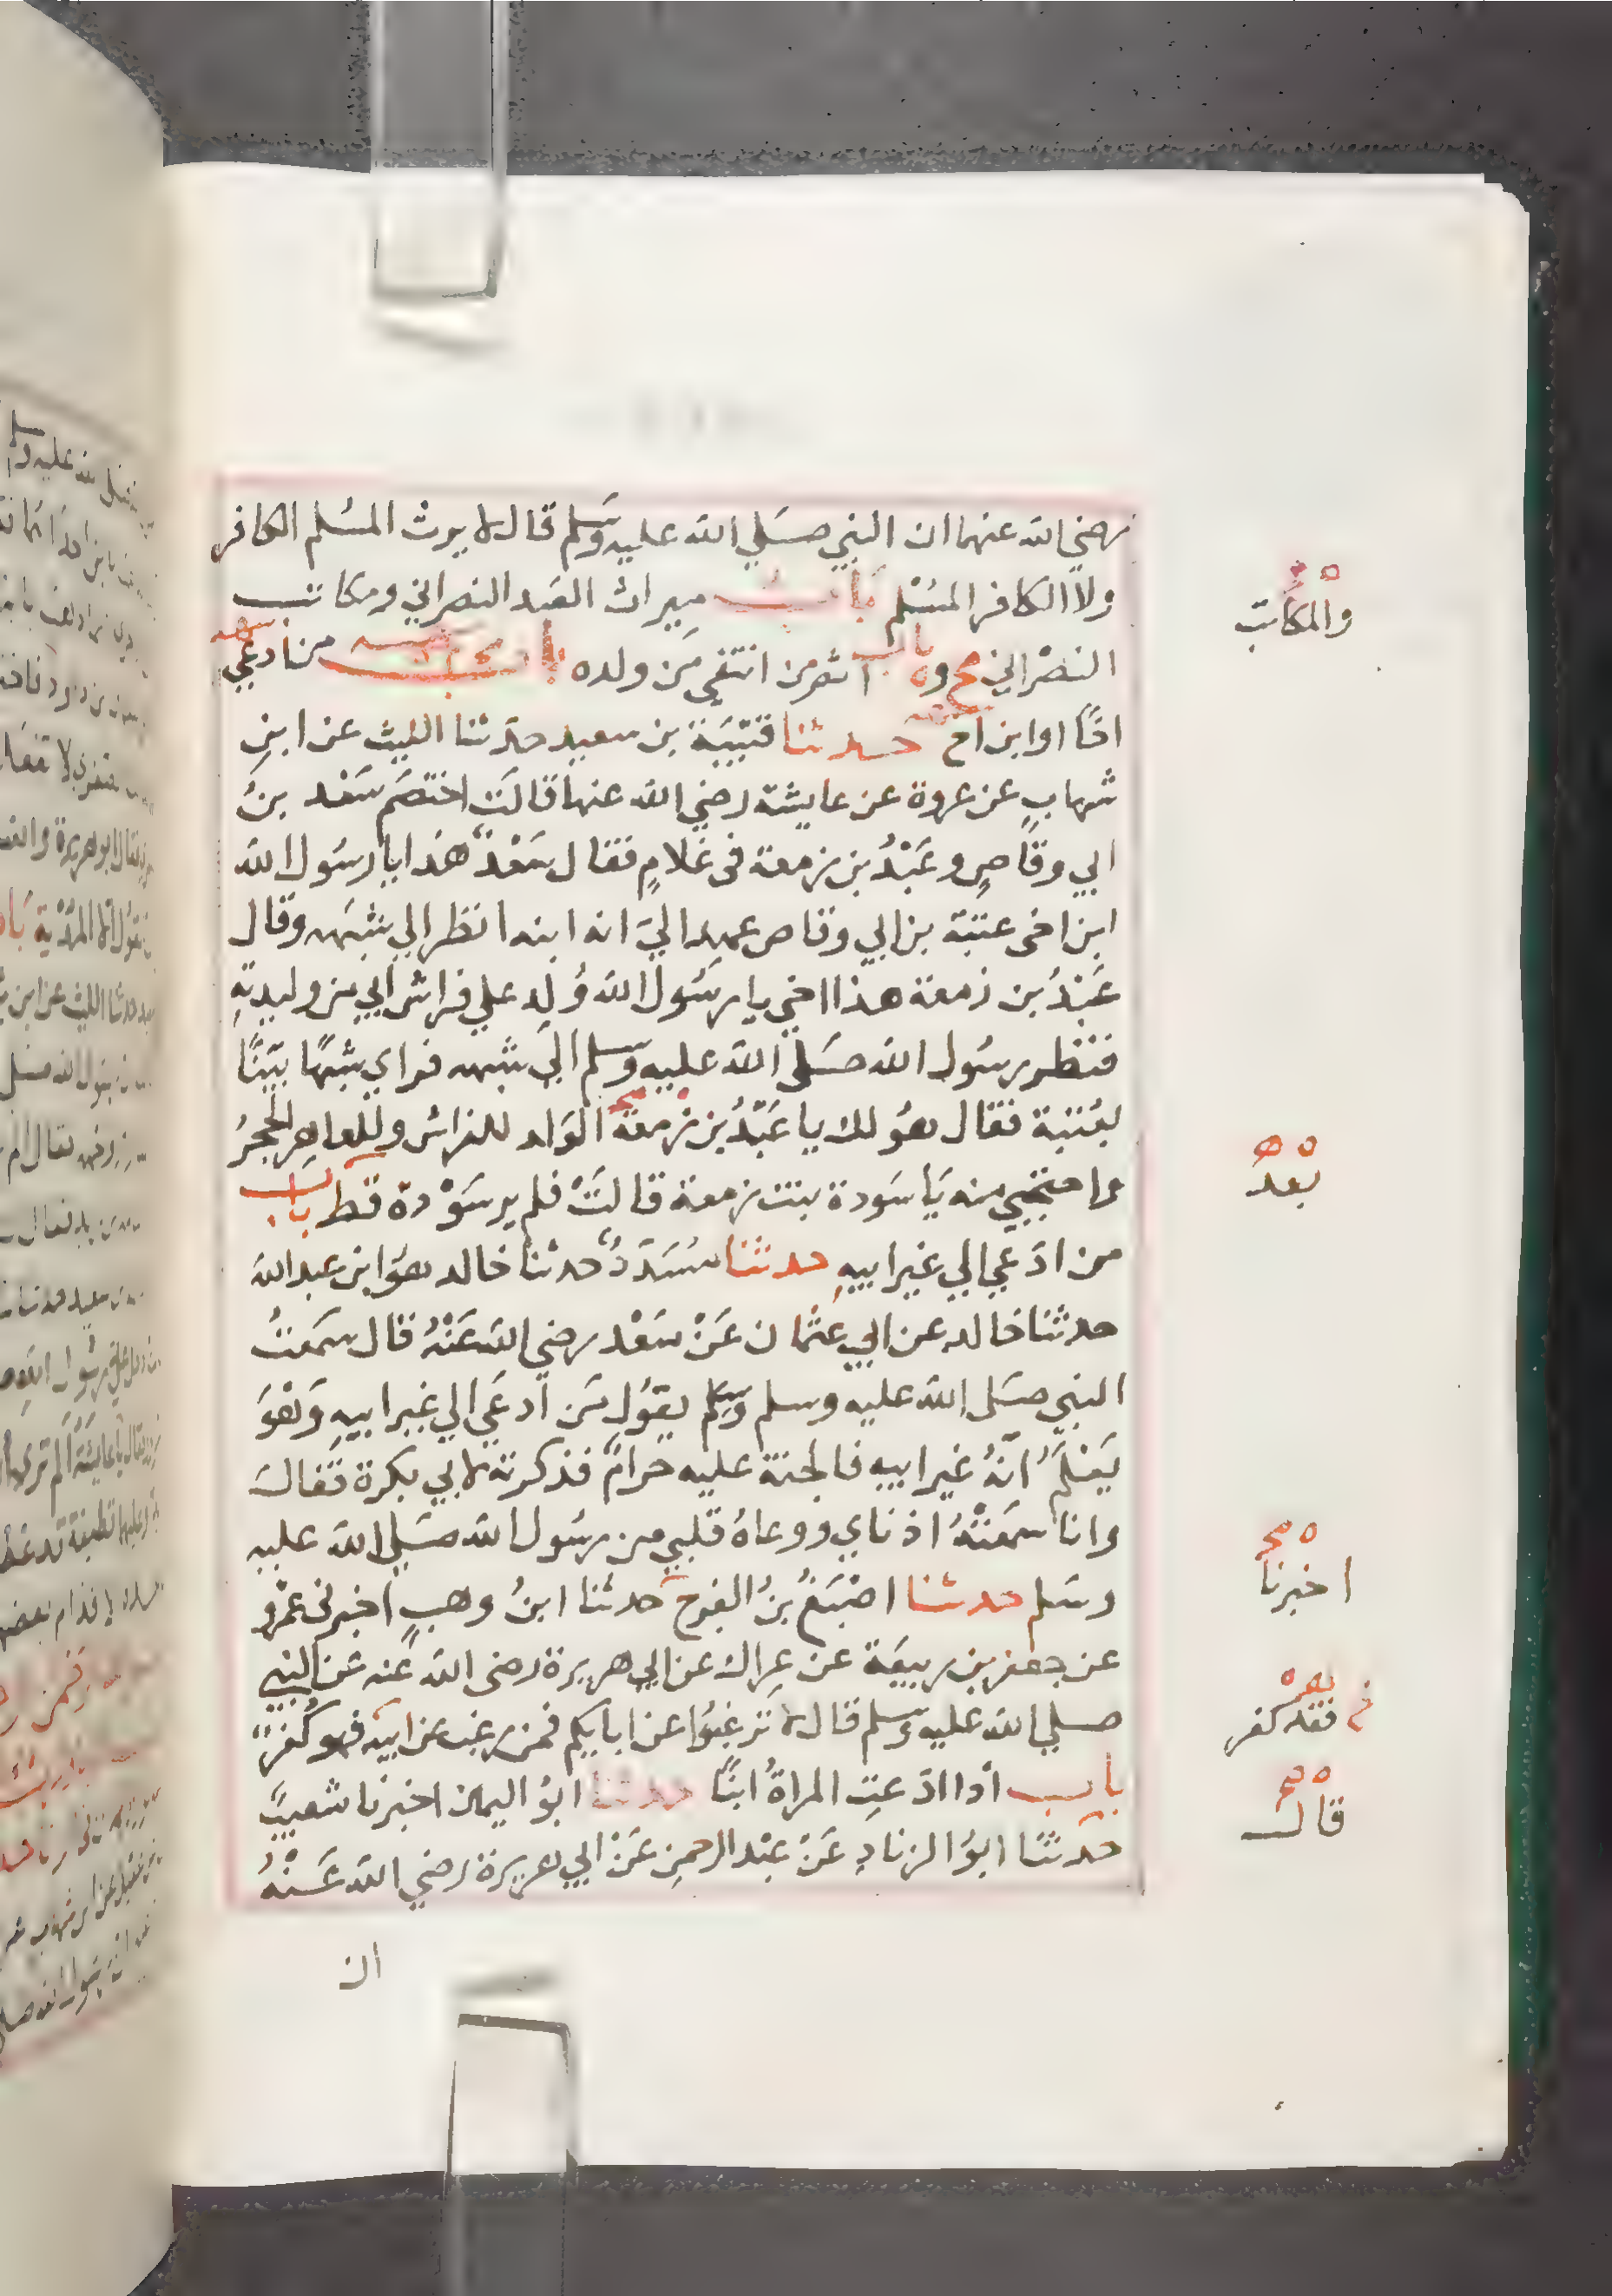 رضي الله عنهما ان النبي صَلي الله عليه وسَلم قال لا يرث المسُلم الكافر
ولا الكافر المسُلم بَابُ ميراث العَبد النصراني ومكاتب
النصْراني وباب اثم من انتفي مَن ولده بابُ من ادعي
اخًا او ابن اخ حدثنا قتيْبَة بن سعيد حدّثنا الليث عن ابنِ
شهابٍ عن عروة عن عايشة رضي الله عنها قالَت اختصَم سَعْد بنُ
ابي وقاصٍ وعَبْدُ بن زمعة فى غلامٍ فقال سَعْدٌ هَذا يا رسَول الله
ابن اخى عتبَة بن ابي وقاص عهد اليَ انه ابنه انظر الي شبهه وقال
عَبْدُ بن زمعة هذا اخي يا رسَول الله وُلِد علي فراش ابي من وليدتهِ
فنظر رسُول الله صَلى الله عليه وسَلم الَي شبهه فراي شبهًا بيّنًا
بعُتبة فقال هوُ لك يا عَبْدُ بن زمعة الوَلد للفراش وللعاهِر الحجرُ
واحتجبي منه يَا سَودة بنت زمعة قالَتْ فلم ير سَوْدة قط باب
من ادّعي الي غير ابيهِ حدثنا مُسَدّدُ حدثنا خالد هوَ ابن عبد الله
حدثنا خالد عن ابي عثمان عَنْ سَعْد رضي الله عَنْهُ قال سَمعتُ
النبي صَلى الله عليه وسلم وسَلم يقوُل مَن ادعَي الي غير ابيهِ وَهْوَ
يَعْلَمُ انّهُ غير ابيه فالجنة عليه حرامٌ فذكرته لابي بكرة فقالَ
وانا سمعَتْهُ اذناي ووعاهُ قلبي من رسُول الله صَلي الله عليه
وسَلم حدثنا اصْبَغُ بنُ الفرج حدثنا ابنُ وهبٍ اخبرنى عمْرو
عن جعفر بن ربيعَة عن عِراك عن ابي هريرة رضى الله عنه عَن النبي
صلي الله عليه وسَلم قال لا ترغبُوا عن ابايكم فمن رغب عن ابيه فهو كُفرٌ
باب اذا ادّعتِ المراةُ ابنًا حدثنا ابوُ اليمان اخبرنا شعيبٌ
حدثنَا ابوُ الزنادِ عَنْ عبْد الرحمنِ عَنْ ابي هريرة رضي الله عَنْهُ
ان
والمكاتب
بعدُ
اخبرنا
فقد كفر
قال